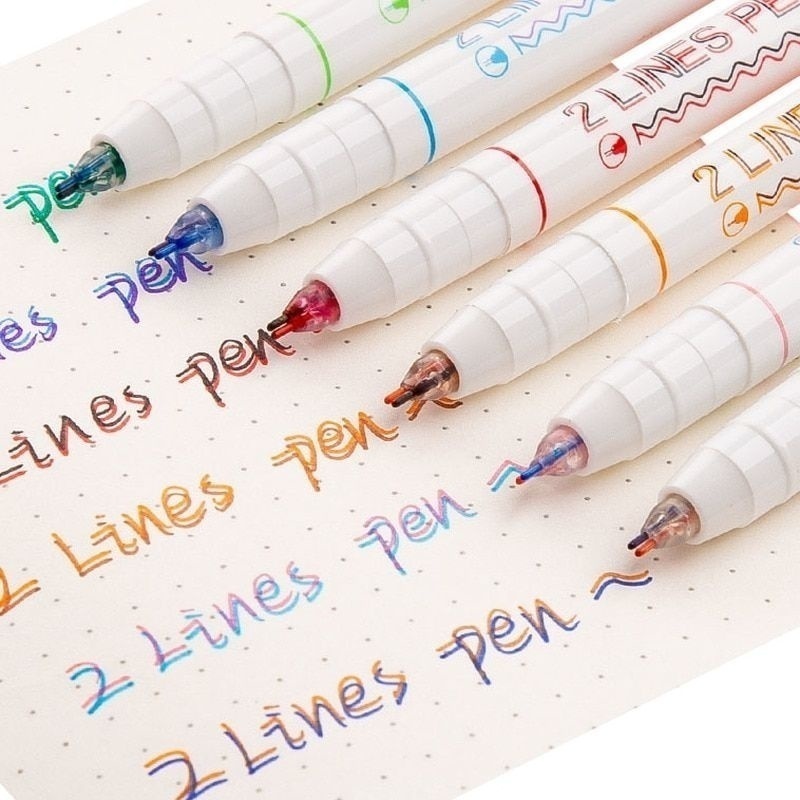 2 LINES PE
2 LINES
2 LIN
pen
nes pen
Lines pen
2 Lines pen
2 Lines pen
2 Lines pen